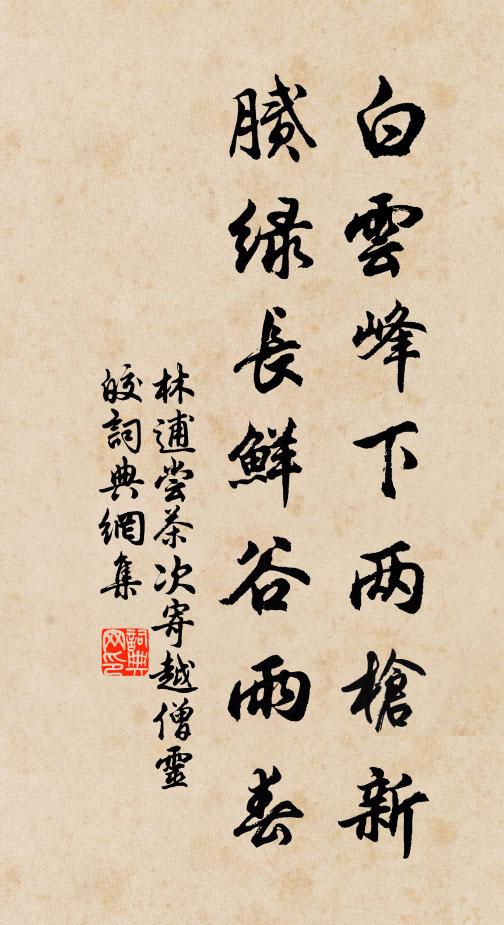 白雲峰下两槍新
膩绿長鮮谷雨春
林逋尝茶次寄越僧靈
皎詞典網集
詞典网印